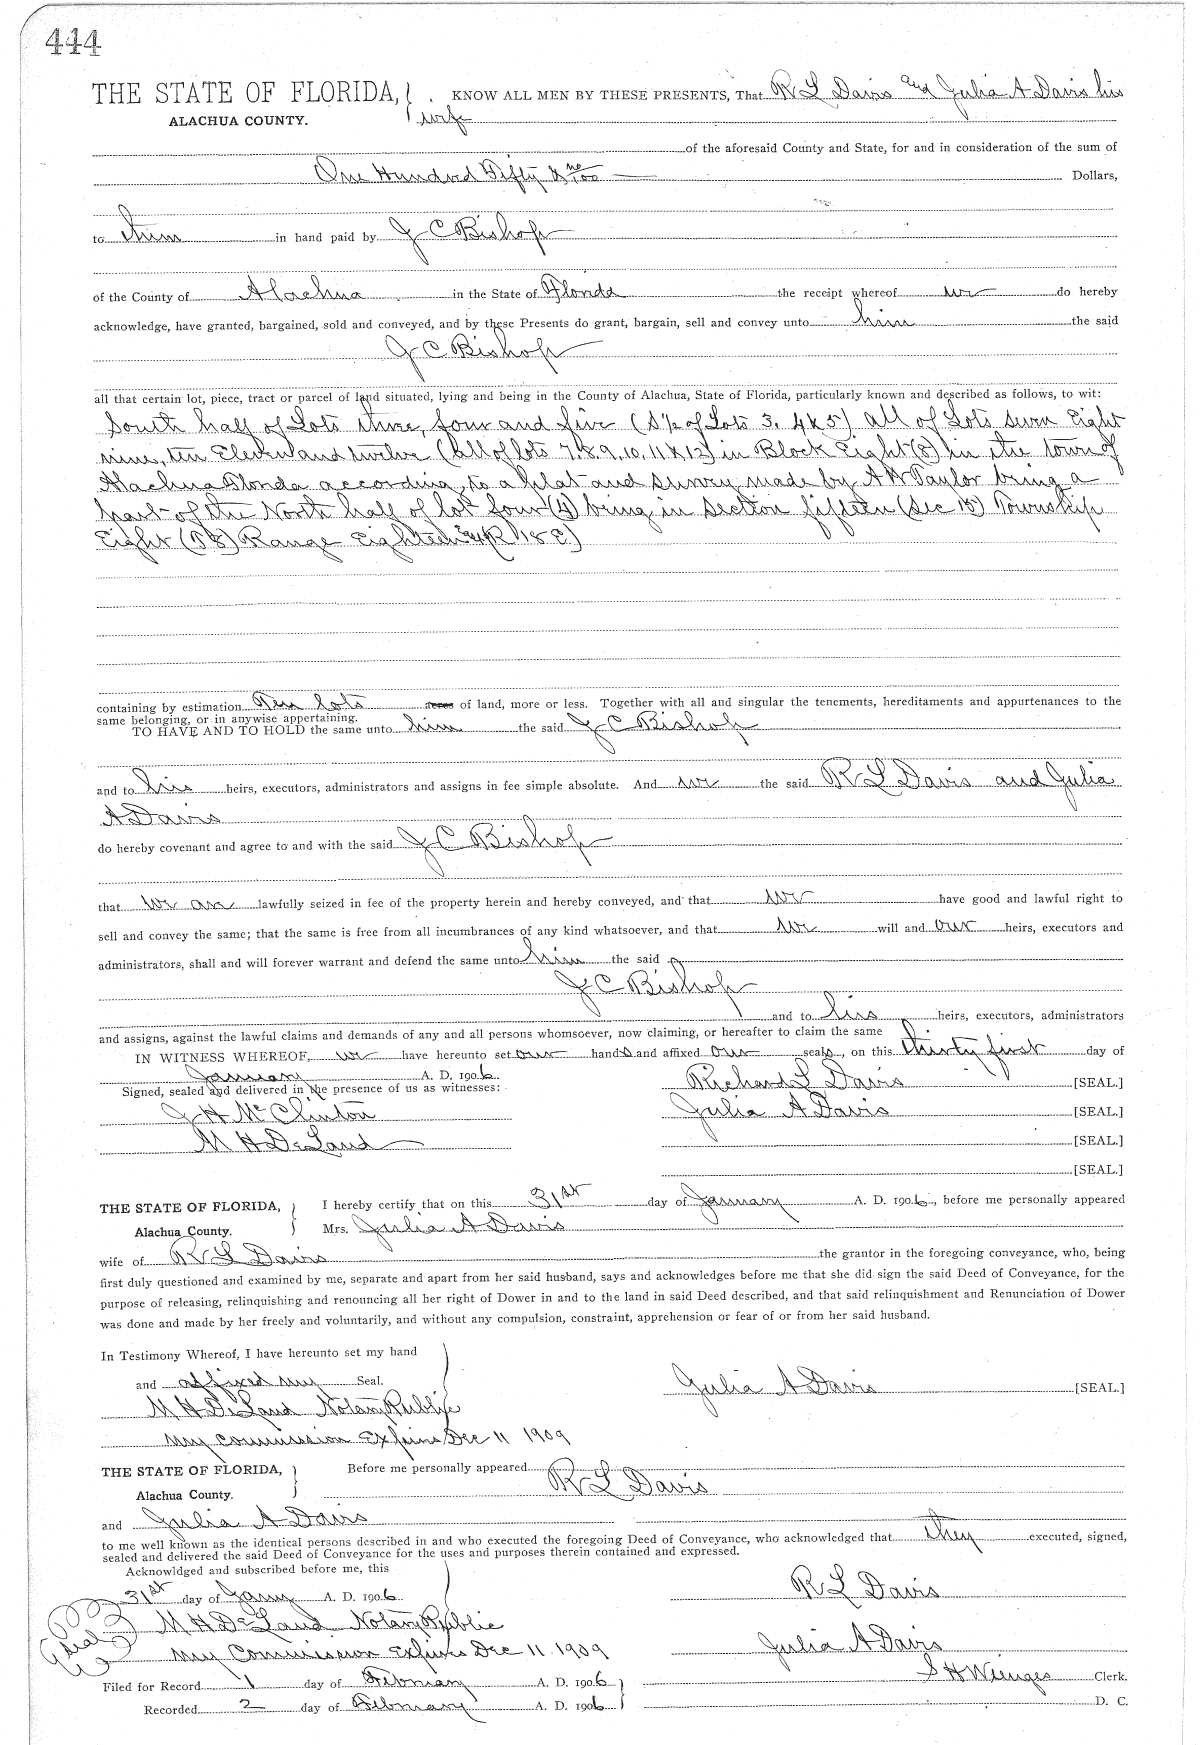 444
THE STATE OF FLORIDA, KNOW ALL MEN BY THESE PRESENTS, That R L Davis and Julia A Davis his
ALACHUA COUNTY. wife
of the aforesaid County and State, for and in consideration of the sum of
One Hundred Fifty & no/100 Dollars,
to them in hand paid by J C Bishop
of the County of Alachua in the State of Florida the receipt whereof we do hereby
acknowledge, have granted, bargained, sold and conveyed, and by these Presents do grant, bargain, sell and convey unto him the said
J C Bishop
all that certain lot, piece, tract or parcel of land situated, lying and being in the County of Alachua, State of Florida, particularly known and described as follows, to wit:
South half of Lots three, four and five (S½ of Lots 3. 4&5) all of Lots seven Eight
nine, ten Eleven and twelve (all of lots 7.8.9,10,11&12) in Block Eight (8) in the town of
Alachua Florida according to a plat and survey made by A W Taylor being a
part of the North half of lot four (4) being in Section fifteen (Sec 15) Township
Eight (T 8) Range Eighteen East (R 18 E)
containing by estimation Ten lots acres of land, more or less. Together with all and singular the tenements, hereditaments and appurtenances to the
same belonging, or in anywise appertaining.
TO HAVE AND TO HOLD the same unto him the said J C Bishop
and to his heirs, executors, administrators and assigns in fee simple absolute. And we the said R L Davis and Julia
A Davis
do hereby covenant and agree to and with the said J C Bishop
that we are lawfully seized in fee of the property herein and hereby conveyed, and that we have good and lawful right to
sell and convey the same; that the same is free from all incumbrances of any kind whatsoever, and that we will and our heirs, executors and
administrators, shall and will forever warrant and defend the same unto him the said
J C Bishop
and to his heirs, executors, administrators
and assigns, against the lawful claims and demands of any and all persons whomsoever, now claiming, or hereafter to claim the same
IN WITNESS WHEREOF, we have hereunto set our hands and affixed our seals, on this thirty first day of
January A. D. 1906
Signed, sealed and delivered in the presence of us as witnesses: Richard L Davis [SEAL.]
J H McClinton Julia A Davis [SEAL.]
M H DeLand [SEAL.]
[SEAL.]
THE STATE OF FLORIDA, I hereby certify that on this 31st day of January A. D. 1906, before me personally appeared
Alachua County. Mrs. Julia A Davis
wife of R L Davis the grantor in the foregoing conveyance, who, being
first duly questioned and examined by me, separate and apart from her said husband, says and acknowledges before me that she did sign the said Deed of Conveyance, for the
purpose of releasing, relinquishing and renouncing all her right of Dower in and to the land in said Deed described, and that said relinquishment and Renunciation of Dower
was done and made by her freely and voluntarily, and without any compulsion, constraint, apprehension or fear of or from her said husband.
In Testimony Whereof, I have hereunto set my hand
and affixed my Seal. Julia A Davis [SEAL.]
M H DeLand Notary Public
My commission Expires Dec 11 1909
THE STATE OF FLORIDA, Before me personally appeared R L Davis
Alachua County.
and Julia A Davis
to me well known as the identical persons described in and who executed the foregoing Deed of Conveyance, who acknowledged that they executed, signed,
sealed and delivered the said Deed of Conveyance for the uses and purposes therein contained and expressed.
Acknowldged and subscribed before me, this
31st day of Jany A. D. 1906 R L Davis
Seal M H DeLand Notary Public
My Commission Expires Dec 11 1909 Julia A Davis
Filed for Record 1 day of February A. D. 1906 S H Wienges Clerk.
Recorded 2 day of February A. D. 1906 D. C.